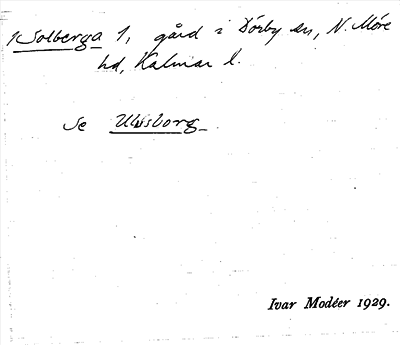 1 Solberga 1, gård i Dörby sn, N. Möre
hd, Kalmar l.
Se Ulvsborg
Ivar Modéer 1929.